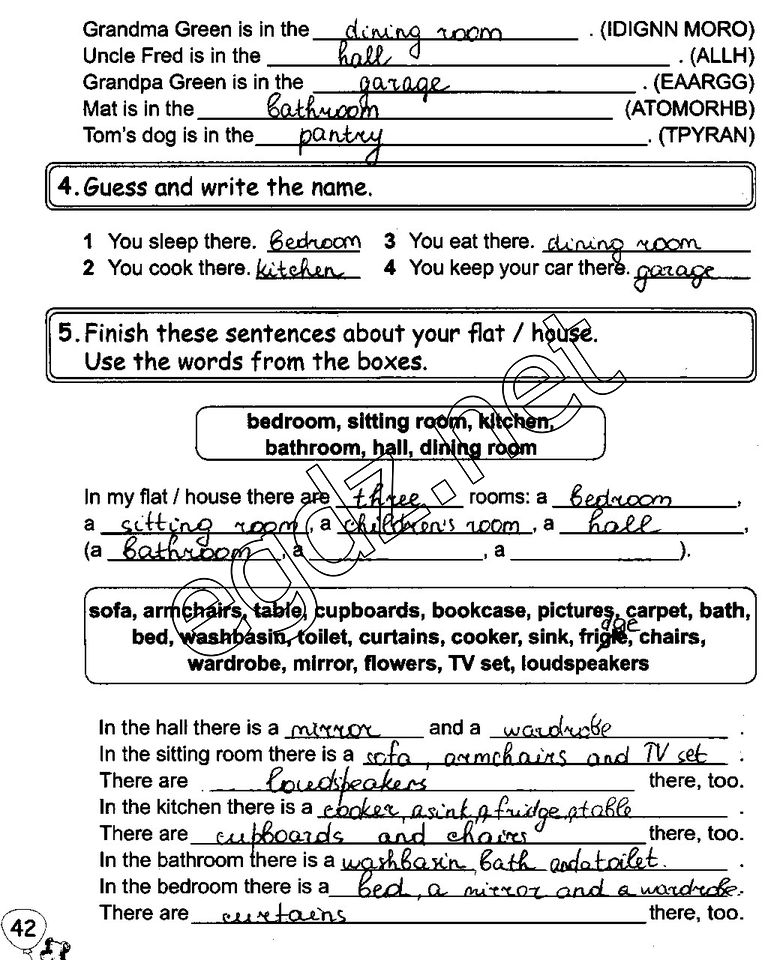 Grandma Green is in the dining room . (IDIGNN MORO)
Uncle Fred is in the hall . (ALLH)
Grandpa Green is in the garage . (EAARGG)
Mat is in the bathroom (ATOMORHB)
Tom's dog is in the pantry . (TPYRAN)
4. Guess and write the name.
1 You sleep there. bedroom 3 You eat there. dining room
2 You cook there. kitchen 4 You keep your car there. garage
5. Finish these sentences about your flat / house.
Use the words from the boxes.
bedroom, sitting room, kitchen,
bathroom, hall, dining room
In my flat / house there are three rooms: a bedroom ,
a sitting room , a children's room , a hall ,
(a bathroom , a , a ).
egdz.net
sofa, armchairs, table, cupboards, bookcase, pictures, carpet, bath,
bed, washbasin, toilet, curtains, cooker, sink, frigle, chairs,
dge
wardrobe, mirror, flowers, TV set, loudspeakers
In the hall there is a mirror and a wardrobe .
In the sitting room there is a sofa, armchairs and TV set .
There are loudspeakers there, too.
In the kitchen there is a cooker, a sink, a fridge, a table .
There are cupboards and chairs there, too.
In the bathroom there is a washbasin, bath and a toilet. .
In the bedroom there is a bed, a mirror and a wardrobe.
There are curtains there, too.
42